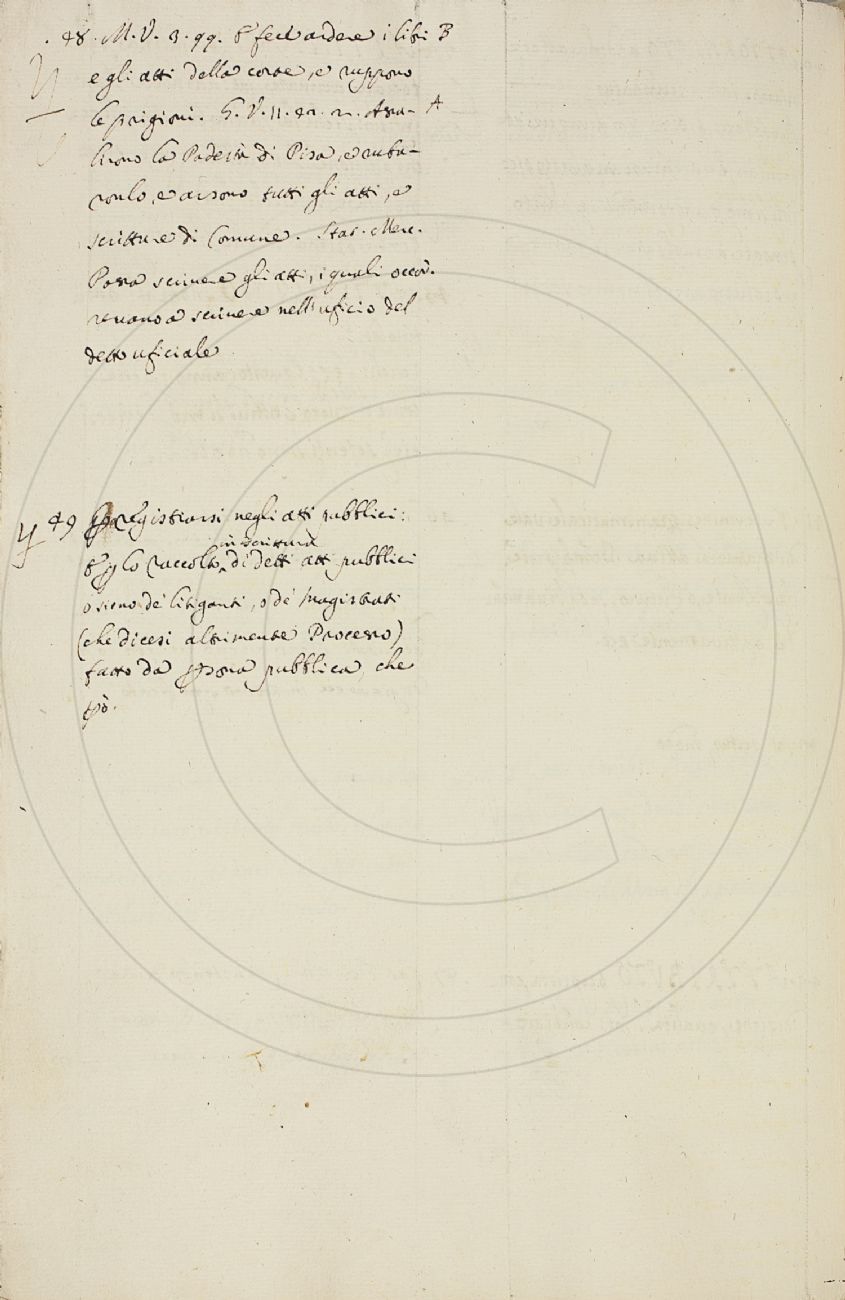 . 48. M. V. 3. 99. E fece ardere i libri B
e gli atti della corte, e ruppono
le prigioni. G. V. 11. A
lirono la Podestà di Pisa, e ruba-
ronlo, e arsono tutti gli atti, e
scritture di Comune. Stat. Merc.
Possa scrivere gli atti, i quali occor-
reranno a scrivere nell'uficio del
detto uficiale
49 registrarsi negli atti pubblici:
in scrittura
E p lo raccolto di detti atti pubblici
o sieno de' litiganti, o de' Magistrati
(che dicesi altrimente Processo)
fatto da psona pubblica, che